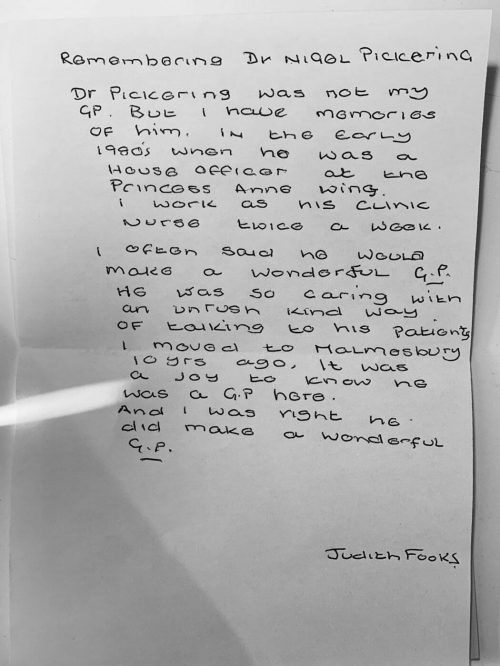 Remembering Dr Nigel Pickering
Dr Pickering was not my
GP. But I have memories
of him. in the early
1980's when he was a
House officer at the
Princess Anne wing.
I work as his clinic
Nurse twice a week.
I often said he would
make a wonderful G.P.
He was so caring with
an unrush kind way
of talking to his patients
I moved to Malmesbury
10 yrs ago, It was
a Joy to know he
was a G.P here.
And I was right he
did make a wonderful
G.P.
Judith Fooks.